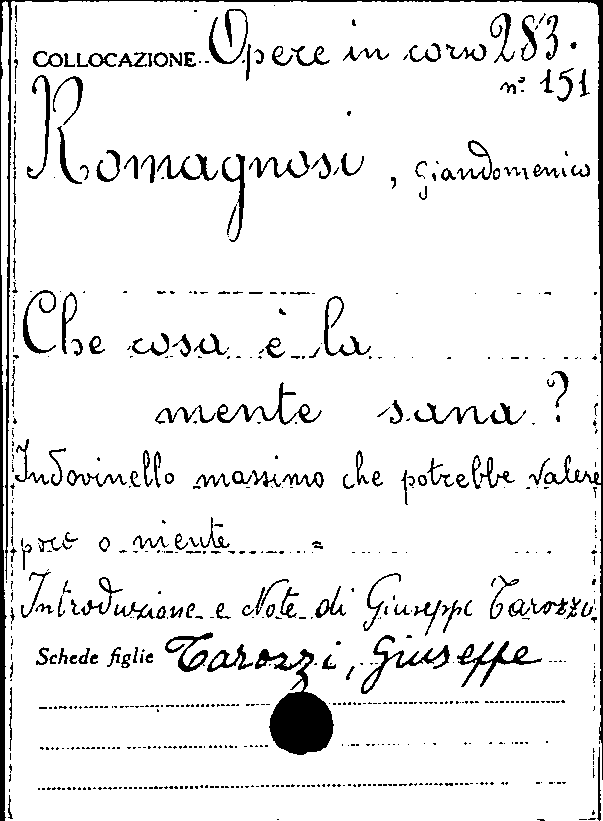 COLLOCAZIONE Opere in corso 283.
n.° 151
Romagnosi, Giandomenico
Che cosa è la
mente sana?
Indovinello massimo che potrebbe valere
poco o niente =
Introduzione e Note di Giuseppe Tarozzi.
Schede figlie Tarozzi, Giuseppe